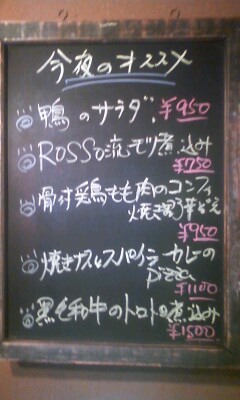 今夜のオススメ
鴨のサラダ ¥950
ROSSO流モツ煮込み
¥750
骨付鶏もも肉のコンフィ
焼き野菜添え
¥950
焼きナスとスパイシーカレーの
pizza
¥1100
黒毛和牛のトロトロ煮込み
¥1500